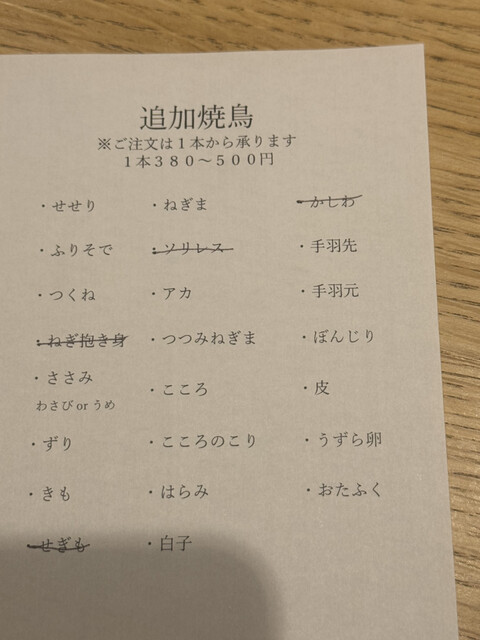 追加焼鳥
※ご注文は１本から承ります
１本３８０～５００円
・せせり ・ねぎま ・かしわ
・ふりそで ・ソリレス ・手羽先
・つくね ・アカ ・手羽元
・ねぎ抱き身 ・つつみねぎま ・ぼんじり
・ささみ ・こころ ・皮
わさび or うめ
・ずり ・こころのこり ・うずら卵
・きも ・はらみ ・おたふく
・せぎも ・白子